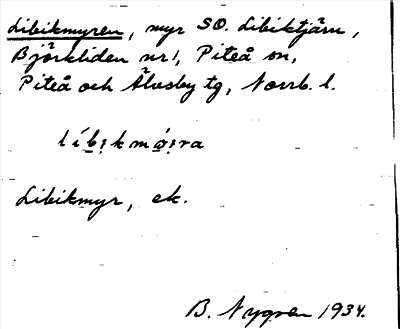 Libikmyren, myr SO. Libiktjärn,
Björkliden nr 1, Piteå sn,
Piteå och Älvsby tg, Norrb. l.
líbikmø̜ira
Libikmyr, ek.
B. Nygren 1934.